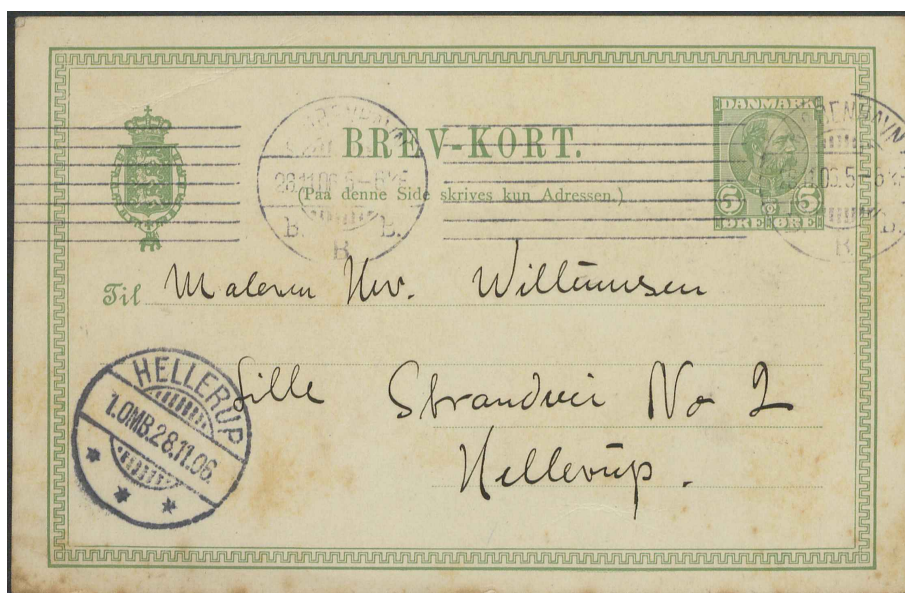 BREV-KORT.
(Paa denne Side skrives kun Adressen.)
DANMARK
5 5
ØRE ØRE
KØBENHAVN
28.11.06. 5-6
b. B. b.
KØBENHAVN
B. b.
Til Maleren Hr. Willumsen
Lille Strandvei No 2
Hellerup.
HELLERUP
1.OMB.28.11.06.